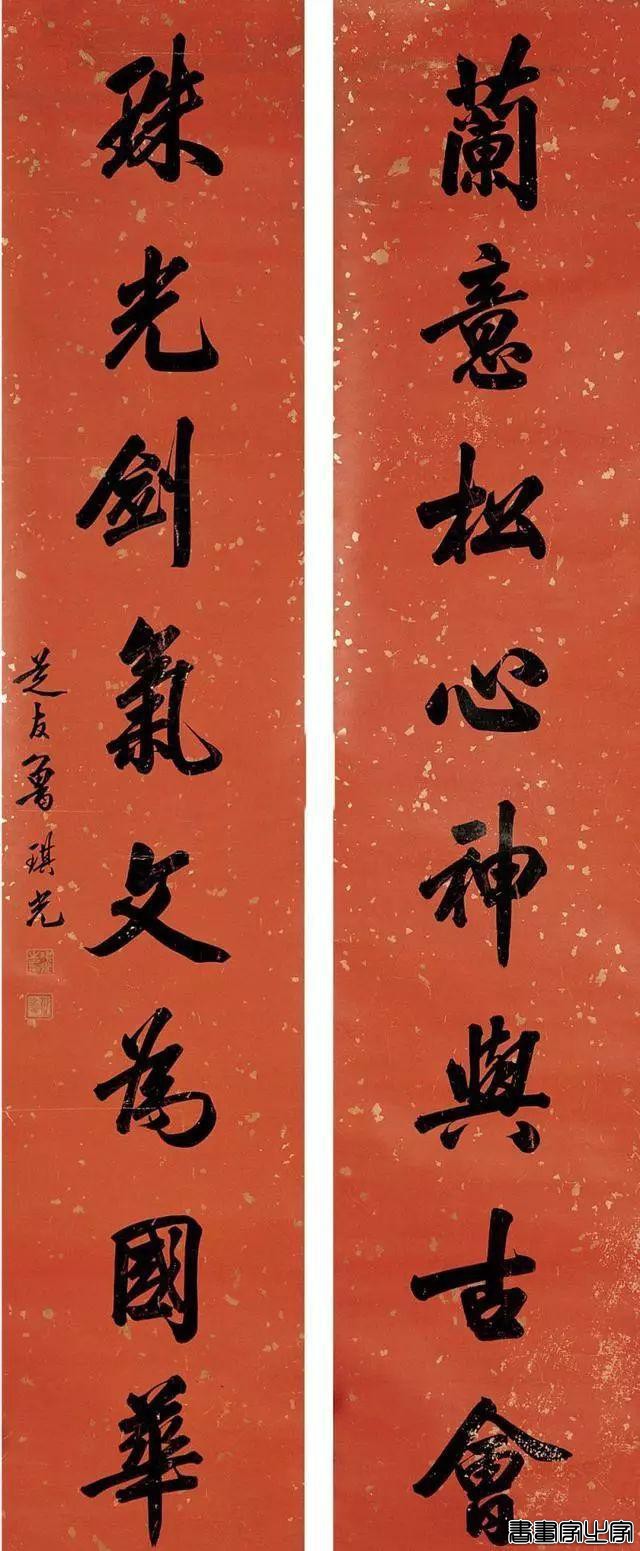 蘭意松心神與古會
珠光劍氣文為國華
芝友魯琪光
書畫家必字